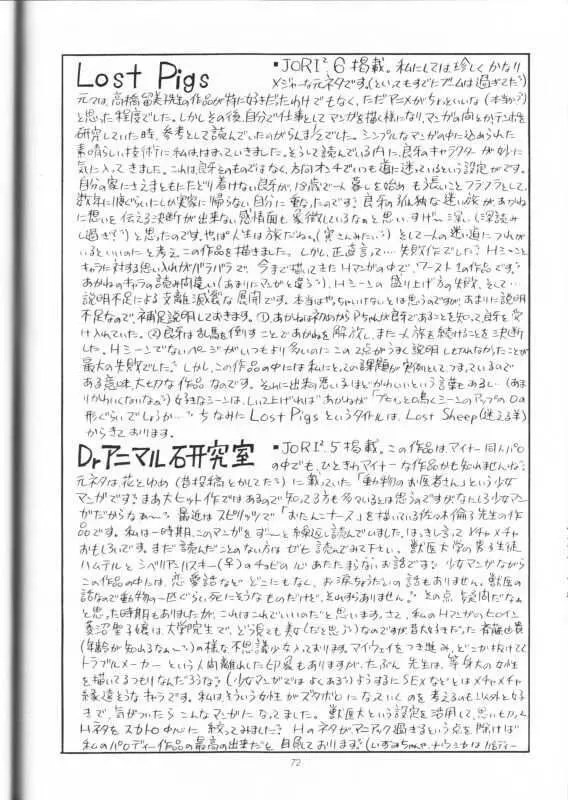 Lost Pigs
・JORI². 6掲載。私にしては珍しくかなり
メジャーな元ネタです。(といってもすでにブームは過ぎてた?)
元々は、高橋留美先生の作品が特に好きだったわけでもなく、ただアニメがちょっといいな(本当か?)
と思った程度でした。しかしその後、自分で仕事としてマンガを描く様になり、マンガの向上かテンポを
研究していた時、参考として読んでいたのがらんま½でした。シンプルなマンガの中に込められた
素晴らしい技術に私ははまっていきました。そうして読んでいる内に、良牙のキャラクターが妙に
気に入ってきました。これは、良牙そのものではなく、方向オンチでいつも道に迷っているという設定がです。
自分の家にさえまともにたどり着けない良牙が、18歳で一人暮しを始め もう長いことフラフラとして、
数年に1度ぐらいにしか実家に帰らない自分に重なったのです?良牙の孤独な迷い旅が、あかね
に想いを伝える決断が出来ない感情面も象徴しているなぁと思い、すげー深い(深読み
し過ぎ?)と思ったのです。やっぱ人生は旅だね。(寅さんみたい?)そして一人の迷い道につれが
いるといいのにと考え この作品を描きました。しかし正直言って…失敗作でした?Hシーンと
キャラに対する思い入れがバラバラで、今まで描いてきたHマンガの中で、ワースト1の作品です?
あかねのキャラの読み間違い(あまりにマンガと違う?)、Hシーンの盛り上げ方の失敗、そして…
説明不足による支離滅裂な展開です。本当はやっちゃいけないとは思うのですが、あまりに説明
不足なので、補足説明しておきます。①、あかねは初めからPちゃんが良牙であることを知って良牙を受
け入れていた。②良牙は乱馬を倒すことであかねを解放し、また一人旅を続けることを決断し
た。Hシーンでないページがいつもより多いのにこの2点がうまく説明しきれなかったことが
最大の失敗でした?しかし、この作品の中には私にとっての課題が実例としてつまっているので
ある意味、大切な作品なのです。それに出来の悪い子ほどかわいいという言葉もあるし…(あま
りかわいくないなぁ?)好きなシーンは、しいて上げれば、あかねが
形ぐらいでしょうか…? ちなみにLost Pigsというタイトルは、Lost Sheep(迷える羊)
からきております。
Drアニマル石研究室
・JORI². 5掲載。この作品は、マイナー同人パロ
の中でも、ひときわマイナーな作品かも知れませんね?
元ネタは、花とゆめ(昔投稿とかしてた?)に載っていた「動物のお医者さん」という少女
マンガです?まぁ大ヒット作ではあるので知ってる方も多々いるとは思うのですが、なにしろ少女マン
ガだからなぁ〜? 最近はスピリッツで「おたんこナース」を描いている佐々木倫子先生の作
品です。私は一時期、このマンガをず〜と繰返し読んでいました。はっきし言ってメチャメチャ
おもしろいです。まだ読んだことのない方はゼヒ読んでみて下さい。獣医大学の男子生徒
ハムテルとシベリアンハスキー(♀)のチョビの心あたたまる?お話です?少女マンガながら
この作品の中には、恋愛話などどこにもなく、お涙ちょうだいの話もありません。獣医の
話なので動物の一匹ぐらい死にそうなものだけど、それすらありません。その点、疑問だなぁ
と思った時期もありましたが、これはこれでいいのだと思います。さて、私のHマンガのヒロイン、
菱沼聖子嬢は、大学院生で、どう見ても美女(だと思う?)なのですが昔大好きだった斉藤由貴
(年齢が知れるなぁ〜?)の様な不思議少女入っております。マイウェイをつき進み、どこか抜けてて
トラブルメーカーという人間離れした印象もありますが、たぶん先生は、等身大の女性
を描いてるつもりなんだろうなぁ?(少女マンガではよくある?)ようするにSEXなどとはメチャメチャ
縁遠そうなキャラです。私はそういう女性がズタボロになっていくのを考えるのも以外と好
きで、気がついたらこんなマンガになってました。獣医大という設定を活用して、思いもよらん
Hネタをスカトロ中心に絞ってみました?Hのネタがマニアック過ぎるという点を除けば
私のパロディー作品の最高の出来だと自負しております?
72